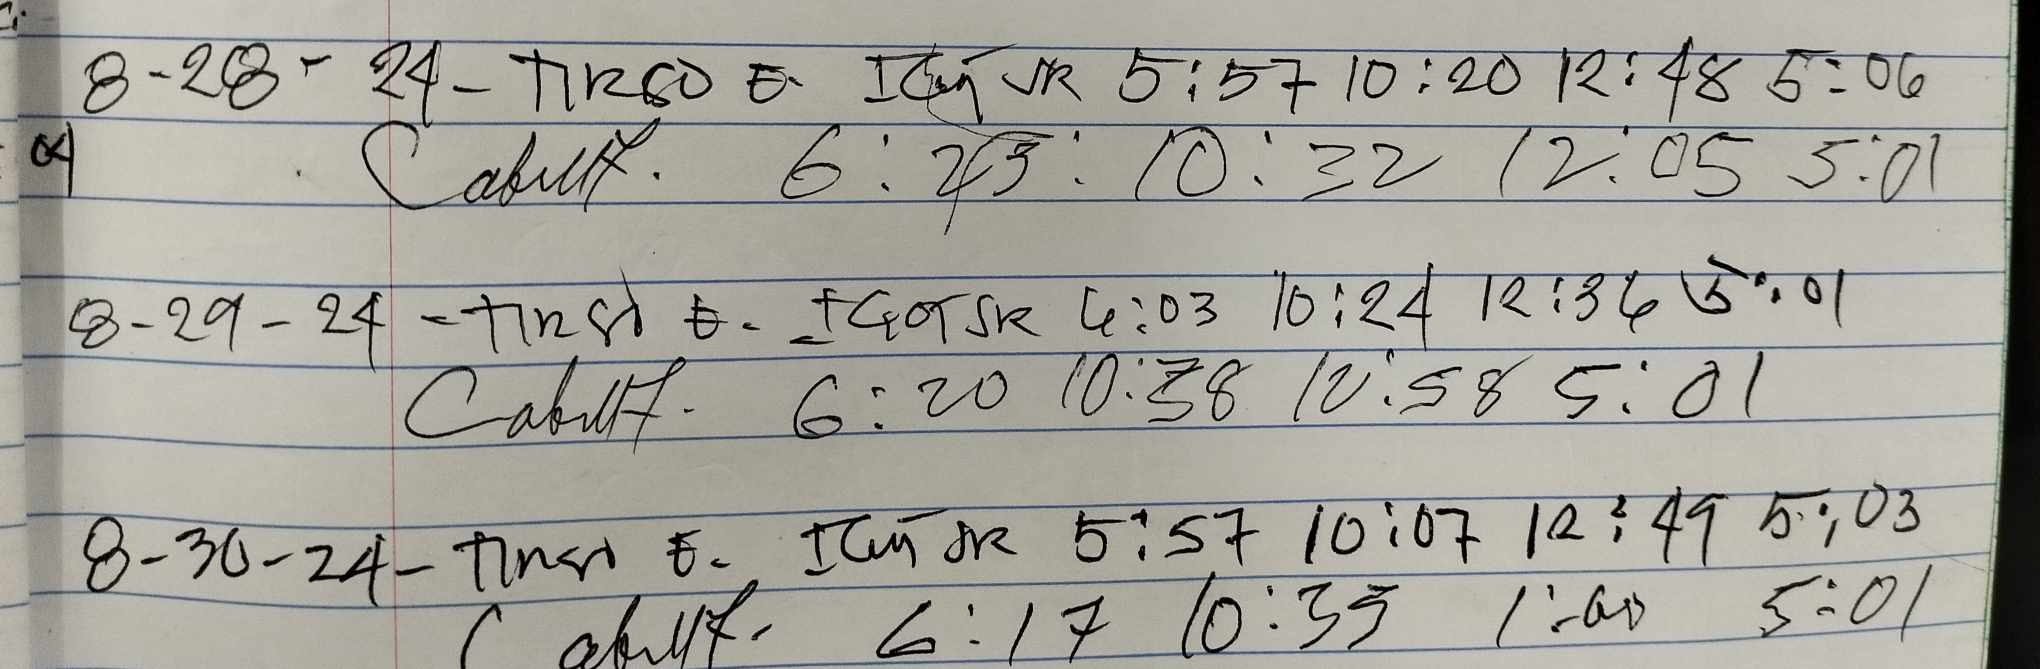 8-28-24-TIRSO E. IGOT JR 5:57 10:20 12:48 5:06
Cabillt. 6:23: 10:32 12:05 5:01
8-29-24-TIRSO E. IGOT JR 6:03 10:24 12:36 5:01
Cabillt. 6:20 10:38 12:58 5:01
8-30-24-TIRSO E. IGOT JR 5:57 10:07 12:49 5:03
Cabillt. 6:17 10:35 1:00 5:01